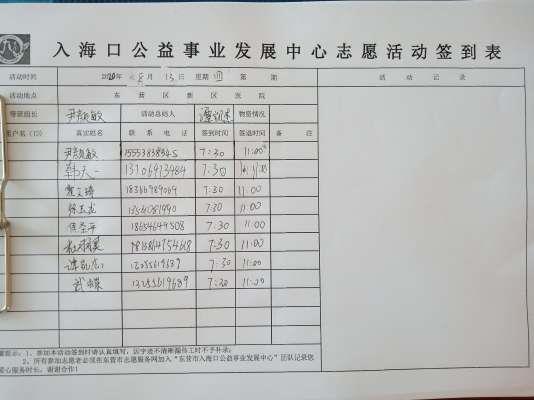 入海口公益事业发展中心志愿活动签到表
活动时间 2020年 8月 13日 星期四 第 期 活 动 记 录
活动地点 东 营 区 新 区 医 院
带班组长 尹 敏 活动总结人 物资情况
账户名(ID) 真实姓名 联 系 电 话 签到时间 签退时间 备 注
尹 敏 15553838345 7:30 11:00
韩天一 13706473484 7:30 11:00
18366989069 7:30 11:00
徐玉龙 7:30 11:00
18654644508 7:30 11:00
7:30 11:00
7:30 11:00
武 13255619689 7:30 11:00
提示:1、参加本活动签到时请认真填写,因字迹不清晰漏你工时不予补录;
2、所有参加志愿者必须在东营市志愿服务网加入“东营市入海口公益事业发展中心”团队记录您
爱心服务时长,谢谢合作!